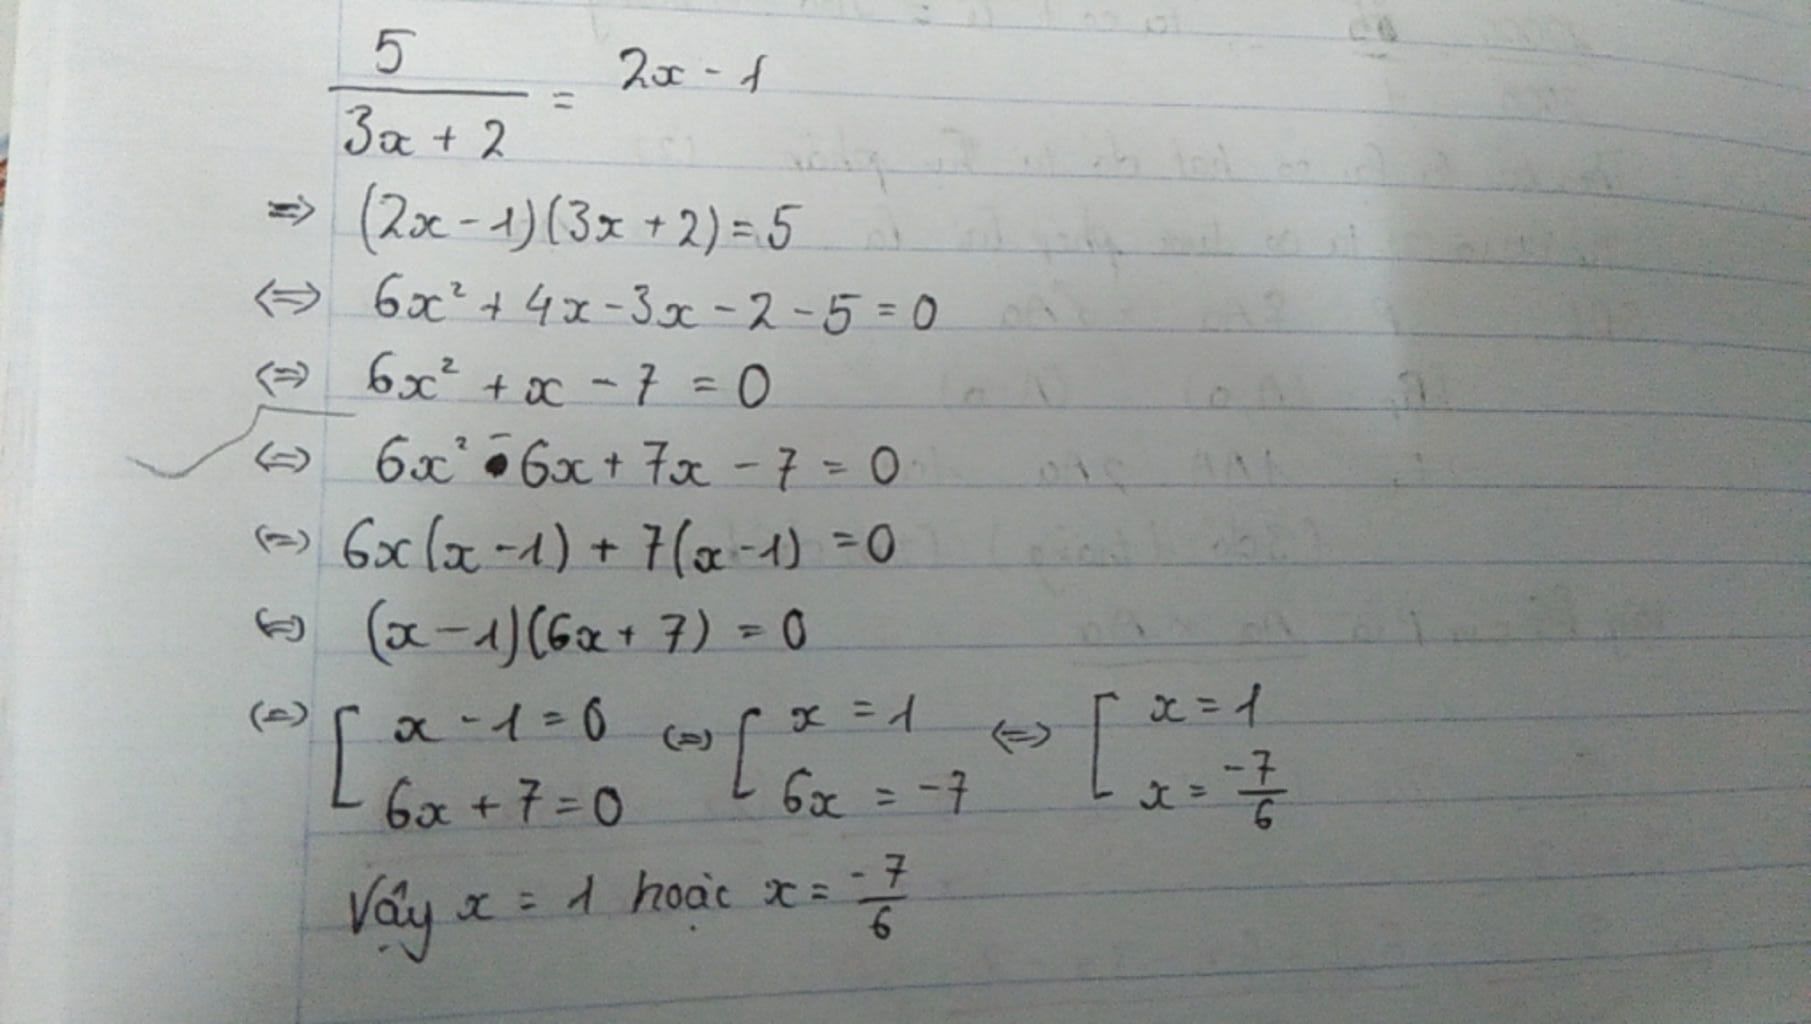 5/(3x + 2) = 2x - 1
=> (2x - 1)(3x + 2) = 5
<=> 6x² + 4x - 3x - 2 - 5 = 0
<=> 6x² + x - 7 = 0
<=> 6x² - 6x + 7x - 7 = 0
<=> 6x(x - 1) + 7(x - 1) = 0
<=> (x - 1)(6x + 7) = 0
<=> [ x - 1 = 0 <=> [ x = 1 <=> [ x = 1
6x + 7 = 0 6x = -7 x = -7/6
Vậy x = 1 hoặc x = -7/6